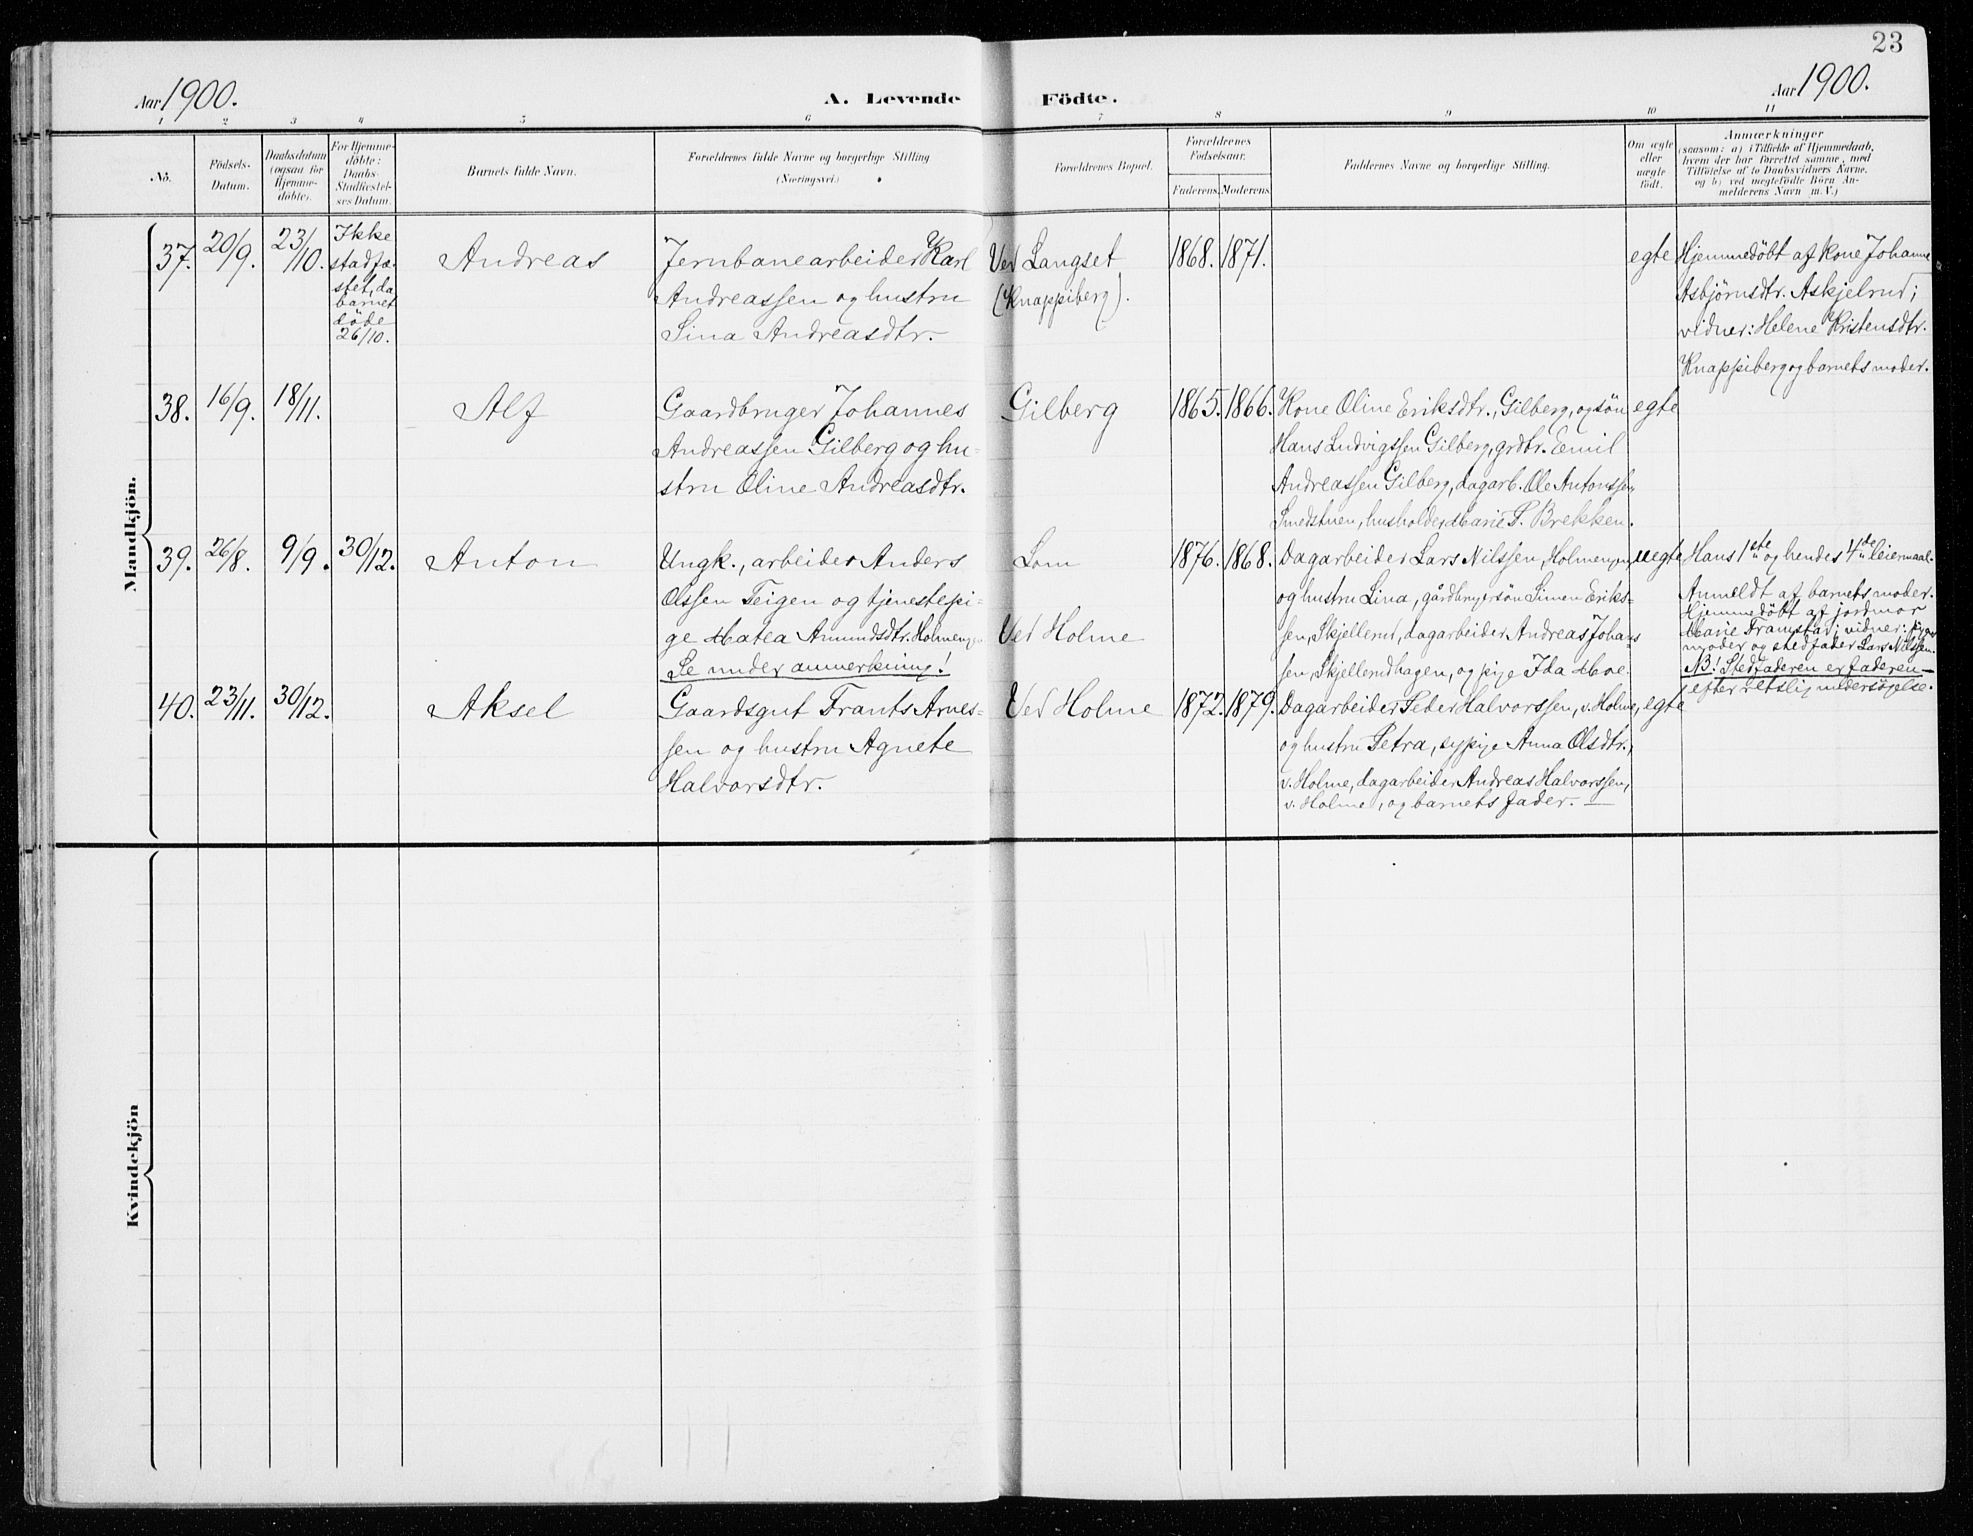 23
Aar 1900.
A. Levende Födte.
Aar 1900.
1 2 3 4 5 6 7 8 9 10 11
No.
Födsels-
Datum.
Daabsdatum
(ogsaa for
Hjemme-
döbte).
For Hjemme-
döbte:
Daabs-
Stadfæstel-
ses Datum.
Barnets fulde Navn.
Forældrenes fulde Navne og borgerlige Stilling
(Næringsvei.)
Forældrenes Bopæl.
Forældrenes
Födselsaar.
Faderens. Moderens.
Faddernes Navne og borgerlige Stilling.
Om ægte
eller
uægte
födt.
Anmærkninger
(saasom: a) i Tilfælde af Hjemmedaab,
hvem der har forrettet samme, med
Tilföielse af to Daabsvidners Navne,
og b) ved uægtefödte Börn An-
melderens Navn m. V.)
Mandkjön.
37.
20/9.
23/10.
Ikke
stadfæ-
stet, da
barnet
döde
26/10.
Andreas
Jernbanearbeider Karl
Andreassen og hustru
Lina Andreasdtr.
Ved Langset
(Knappiberg).
1868. 1871.
egte
Hjemmedöbt af kone Johanne
Asbjörnsdtr. Askjelrud;
vidner: Helene Kristensdtr.
Knappiberg og barnets moder.
38.
16/9.
18/11.
Alf
Gaardbruger Johannes
Andreassen Gilberg og hu-
stru Oline Andreasdtr.
Gilberg
1865. 1866.
Kone Oline Eriksdtr., Gilberg, og sön
Hans Ludvigssen Gilberg, grdbr. Emil
Andreassen Gilberg, dagarb. Ole Antonssen
Smedstuen, husholder. Marie P. Brekken.
egte
39.
26/8.
9/9.
30/12.
Anton
Ungk., arbeider Anders
Olssen Teigen og tjenestepi-
ge Matea Amundsdtr. Holmengen
Se under anmerkning!
Lom
Ved Holme
1876. 1868.
Dagarbeider Lars Nilssen, Holmengen,
og hustru Lina, gårdbrugersön Simen Eriks-
sen, Skjellerud, dagarbeider Andreas Johans-
sen, Skjellerudhagen, og pige Ida Moe.
uegte
Hans 1ste og hendes 4de leiermaal.
Anmeldt af barnets moder.
Hjemmedöbt af jordmor
Marie Framstad; vidner: pigens
moder og stedfader Lars Nilssen.
NB! Stedfaderen er faderen
efter retslig undersøgelse.
40.
23/11.
30/12.
Aksel
Gaardsgut Frants Arnes-
sen og hustru Agnete
Halvorsdtr.
Ved Holme
1872. 1879.
Dagarbeider Peder Halvorssen, v. Holme,
og hustru Petra, sypige Anna Olsdtr.,
v. Holme, dagarbeider Andreas Halvorssen,
v. Holme, og barnets fader. —
egte
Kvindekjön